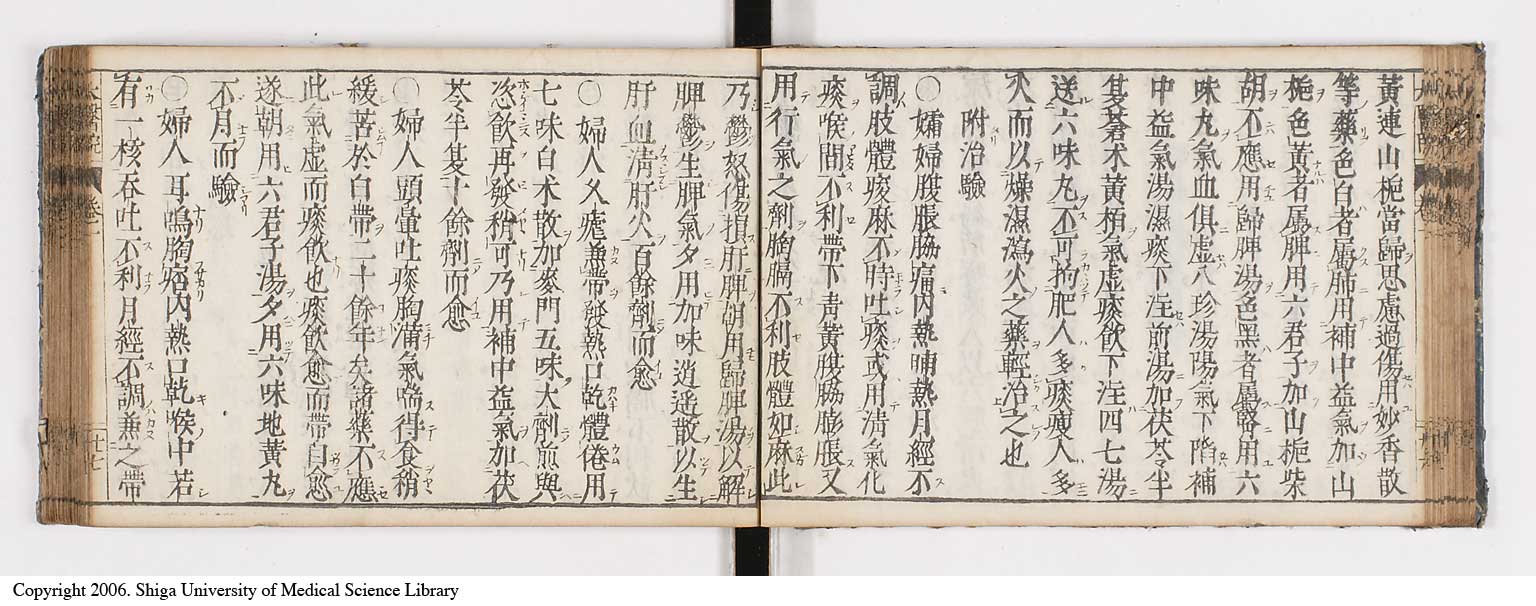 黃連山梔當歸思慮過傷用妙香散
等藥色白者屬肺用補中益氣加山
梔色黃者屬脾用六君子加山梔柴
胡不應用歸脾湯色黑者屬腎用六
味丸氣血俱虛八珍湯陽氣下陷補
中益氣湯濕痰下注前湯加茯苓半
夏蒼朮黃栢氣虛痰飲下注四七湯
送六味丸不可拘肥人多痰瘦人多
火而以燥濕瀉火之藥輕治之也
附治驗
○孀婦腹脹脇痛內熱晡熱月經不
調肢體痠麻不時吐痰或用淸氣化
痰喉間不利帶下靑黃腹脇膨脹又
用行氣之劑胸膈不利肢體如麻此
乃鬱怒傷損肝脾朝用歸脾湯以解
脾鬱生脾氣夕用加味逍遥散以生
肝血淸肝火百餘劑而愈
○婦人久瘧兼帶發熱口乾體倦用
七味白朮散加麥門五味大劑煎與
恣飮再發稍可乃用補中益氣加茯
苓半夏十餘劑而愈
○婦人頭暈吐痰胸滿氣喘得食稍
緩苦於白帶二十餘年矣諸藥不應
此氣虛而痰飮也痰飮愈而帶自愈
遂朝用六君子湯夕用六味地黃丸
不月而驗
○婦人耳鳴胸痞內熱口乾喉中若
有一核吞吐不利月經不調兼之帶
卷一
十七
Copyright 2006. Shiga University of Medical Science Library